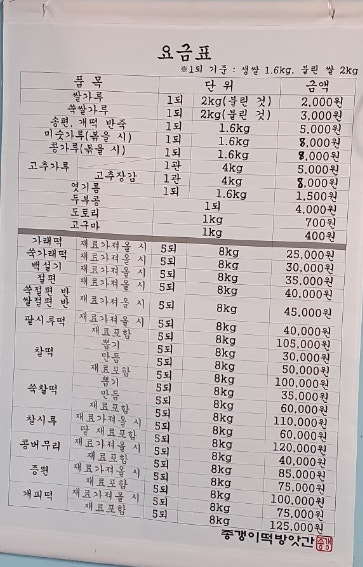 요금표
※1되 기준 : 생쌀 1.6kg, 불린 쌀 2kg
품 목 단 위 금액
쌀가루 1되 2kg(불린 것) 2,000원
쑥쌀가루 1되 2kg(불린 것) 3,000원
송편, 개떡 반죽 1되 1.6kg 5,000원
미숫가루(볶을 시) 1되 1.6kg 8,000원
콩가루(볶을 시) 1되 1.6kg 8,000원
고추가루 1관 4kg 5,000원
고추장감 1관 4kg 8,000원
엿기름 1되 1.6kg 1,500원
두부콩 1되 4,000원
도토리 1kg 700원
고구마 1kg 400원
가래떡 재료가져올 시 5되 8kg 25,000원
쑥가래떡 재료가져올 시 5되 8kg 30,000원
백설기 재료가져올 시 5되 8kg 35,000원
절편 재료가져올 시 5되 8kg 40,000원
쑥절편 반
쌀절편 반 재료가져올 시 5되 8kg 45,000원
팥시루떡 재료가져올 시 5되 8kg 40,000원
재료포함 5되 8kg 105,000원
찰떡 뽑기 5되 8kg 30,000원
만듬 5되 8kg 50,000원
재료포함 5되 8kg 100,000원
쑥찰떡 뽑기 5되 8kg 35,000원
만듬 5되 8kg 60,000원
재료포함 5되 8kg 110,000원
찰시루 재료가져올 시 5되 8kg 60,000원
팥 재료포함 5되 8kg 120,000원
콩버무리 재료가져올 시 5되 8kg 40,000원
재료포함 5되 8kg 85,000원
증편 재료가져올 시 5되 8kg 75,000원
재료포함 5되 8kg 100,000원
개피떡 재료가져올 시 5되 8kg 75,000원
재료포함 5되 8kg 125,000원
중갱이떡방앗간